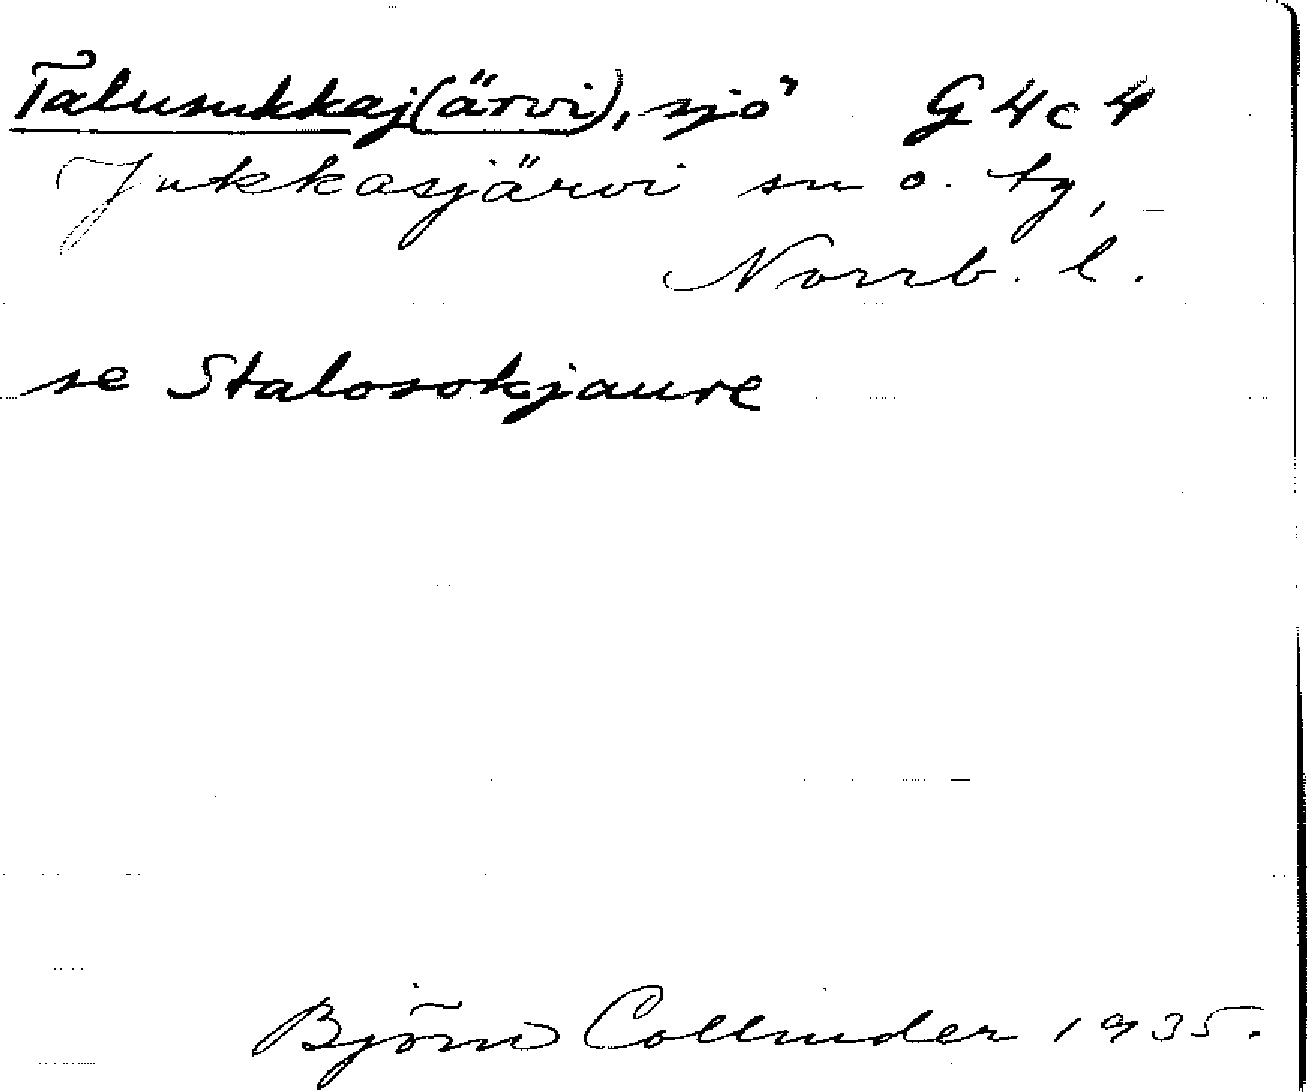 Talusukkaj(ärvi), sjö G 4 c 4
Jukkasjärvi sn o. tg,
Norrb. l.
se Stalosokjaure
Björn Collinder 1935.